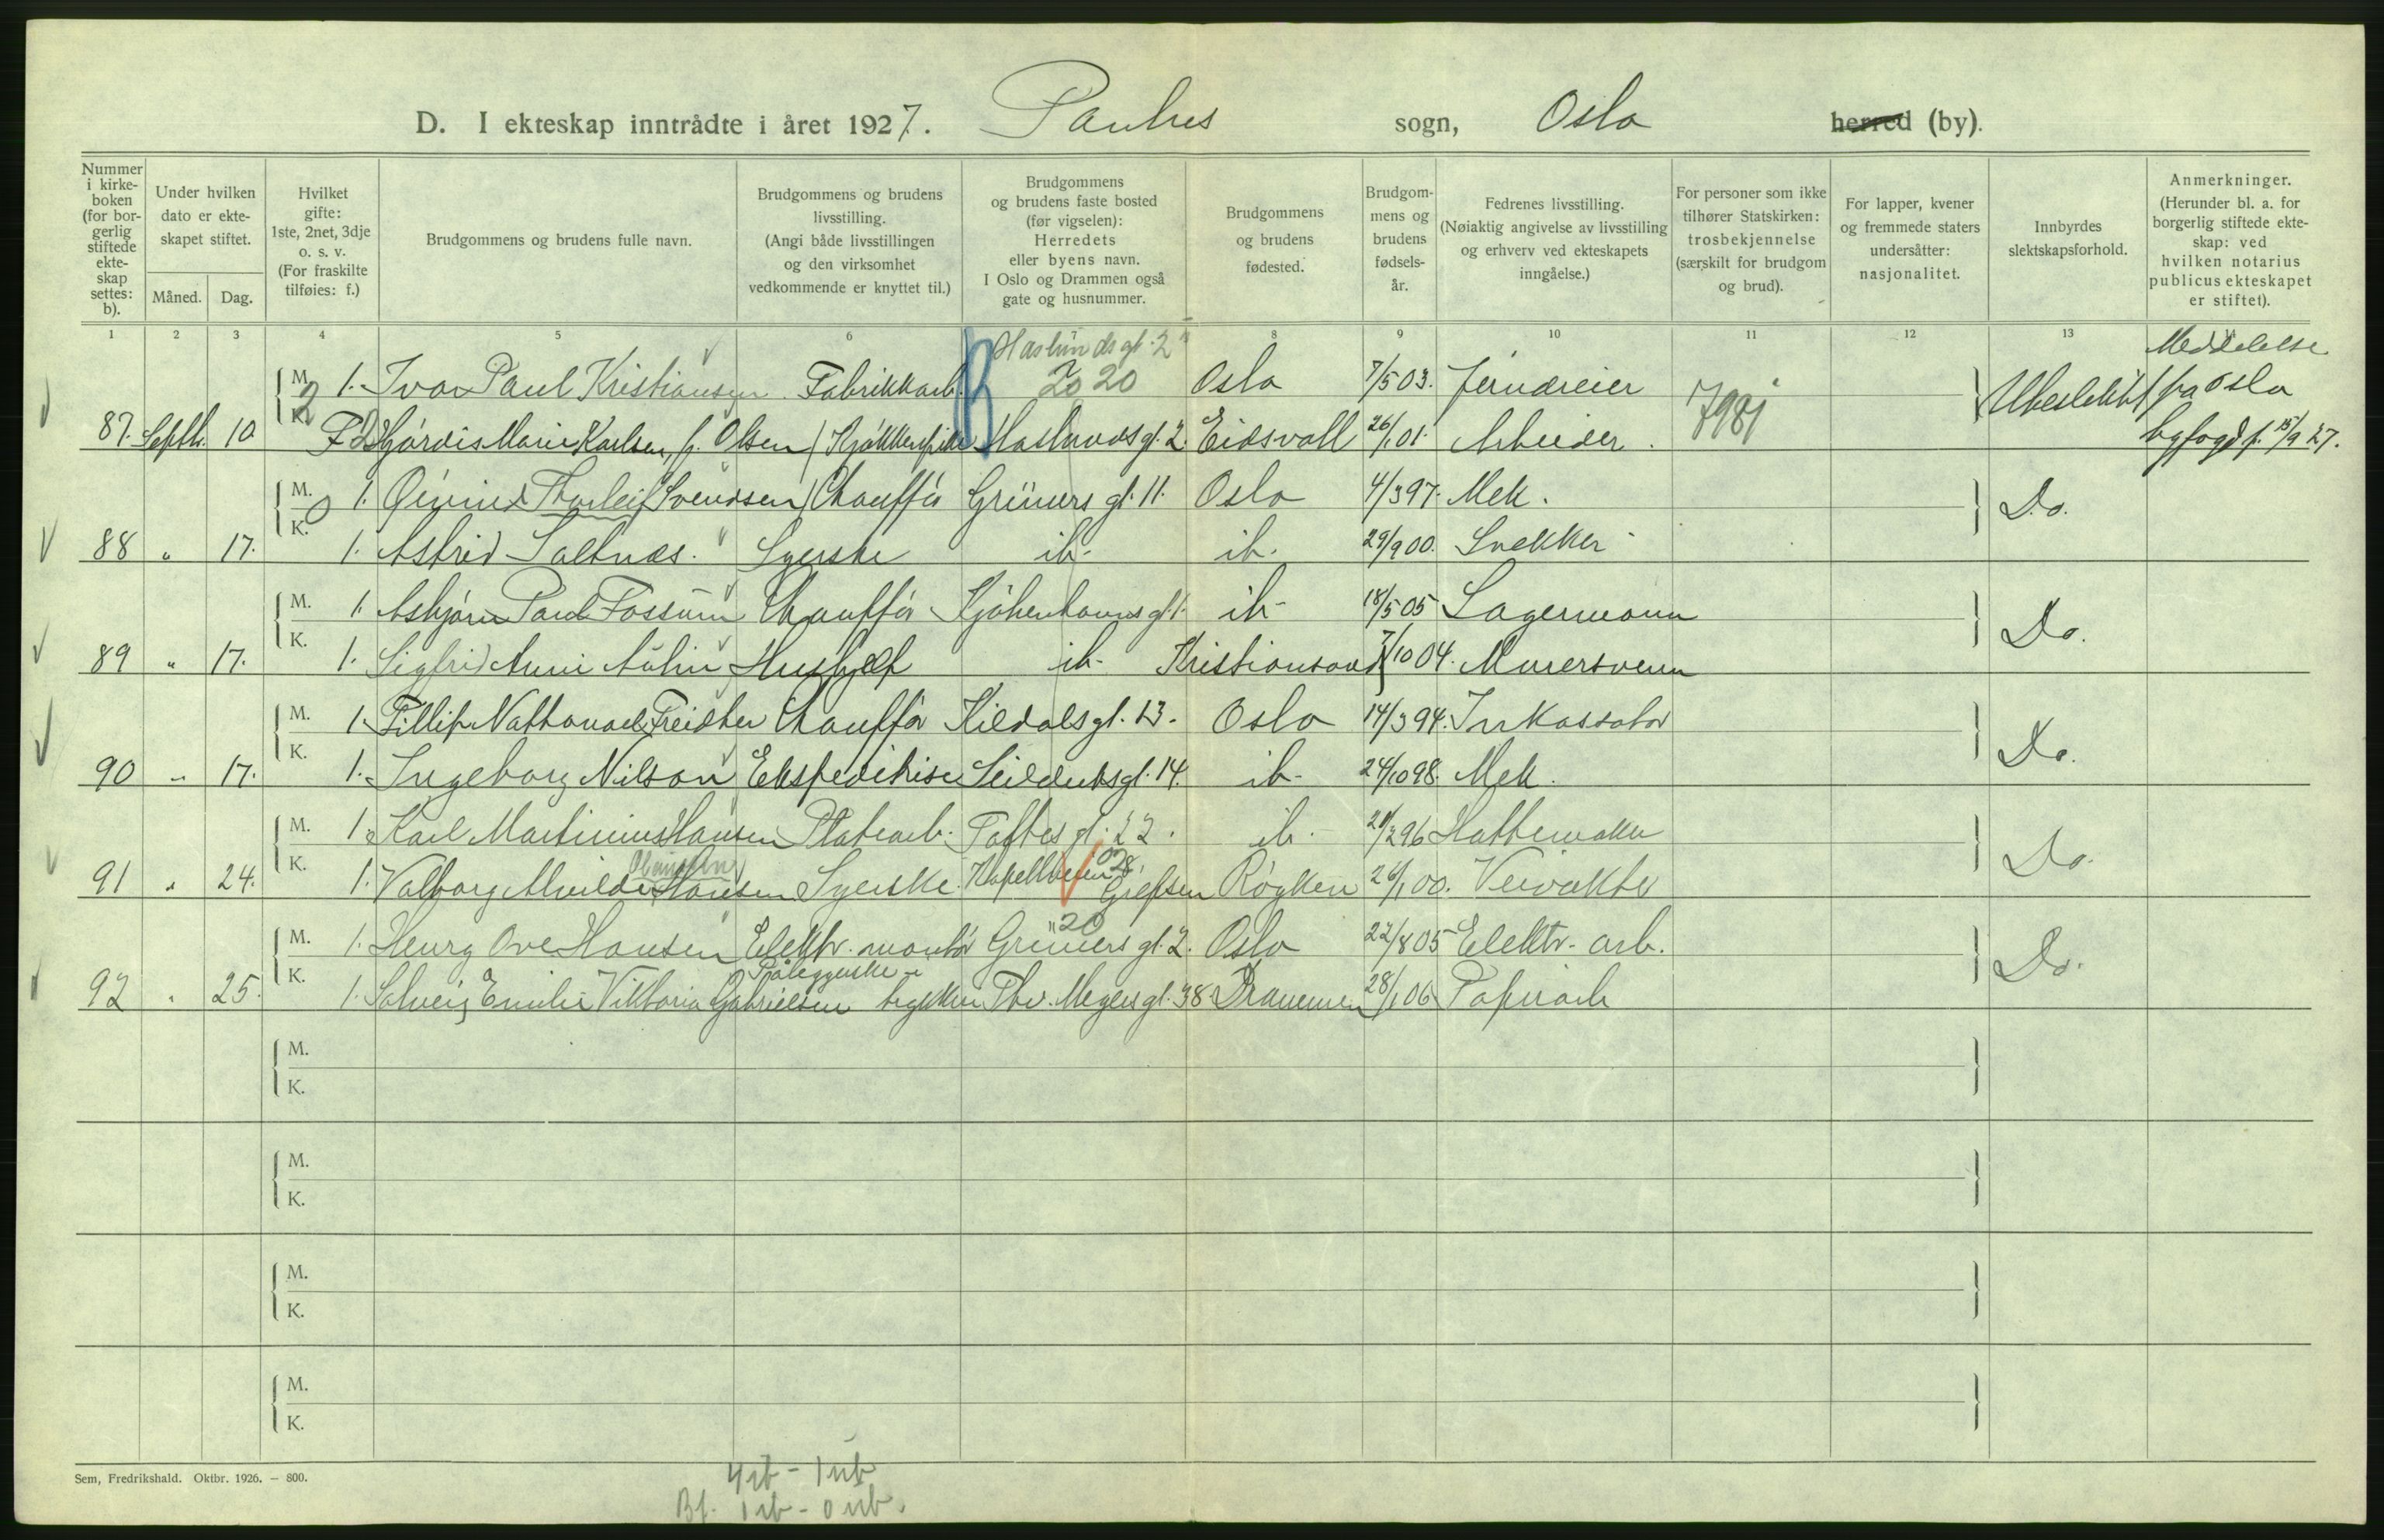 D. I ekteskap inntrådte i året 1927. Paulus sogn, Oslo herred (by).
Nummer i kirkeboken (for borgerlig stiftede ekteskap settes: b).
Under hvilken dato er ekteskapet stiftet.
Måned. Dag.
Hvilket gifte: 1ste, 2net, 3dje o. s. v. (For fraskilte tilføies: f.)
Brudgommens og brudens fulle navn.
Brudgommens og brudens livsstilling. (Angi både livsstillingen og den virksomhet vedkommende er knyttet til.)
Brudgommens og brudens faste bosted (før vigselen): Herredets eller byens navn. I Oslo og Drammen også gate og husnummer.
Brudgommens og brudens fødested.
Brudgommens og brudens fødselsår.
Fedrenes livsstilling. (Nøiaktig angivelse av livsstilling og erhverv ved ekteskapets inngåelse.)
For personer som ikke tilhører Statskirken: trosbekjennelse (særskilt for brudgom og brud).
For lapper, kvener og fremmede staters undersåtter: nasjonalitet.
Innbyrdes slektskapsforhold.
Anmerkninger. (Herunder bl. a. for borgerlig stiftede ekteskap: ved hvilken notarius publicus ekteskapet er stiftet).
1 2 3 4 5 6 7 8 9 10 11 12 13
Haslunds gt. 2
M. 1. Ivar Paul Kristiansen Fabrikkarb. 20 Oslo 7/5 03. Jerndreier
87. Septb. 10 K. F 2 Hjørdis Marie Karlsen, f. Olsen Kjøkkenpike Haslunds gt. 2. Eidsvoll 26/1 01. Arbeider. 7981 Ubeslektet
Meddelelse fra Oslo byfogd f. 15/9 27.
M. 1. Øivind Thorleif Svendsen Chauffør Grüners gt. 11. Oslo 4/3 97. Mek.
88 " 17. K. 1. Astrid Saltnes. Syerske ib. ib. 29/9 00. Snekker Do.
M. 1. Asbjørn Paul Fossum Chauffør Kjøbenhavns gt. 1. ib. 18/5 05 Lagermann
89 " 17. K. 1. Sigfrid Anni Aulin Hushjelp ib. Kristiansand 7/10 04. Murersvenn Do.
M. 1. Fillip Nathanael Freidker Chauffør Kildals gt. 13. Oslo 14/3 94. Inkassator
90 " 17. K. 1. Ingeborg Nilson Ekspeditrise Seilduks gt. 14. ib. 24/10 98. Mek. Do.
M. 1. Karl Martinius Hansen Platearb. Toftes gt. 22. ib. 21/2 96 Hattemaker
91 " 24. K. 1. Valborg Alvilde Hansen Syerske. Kapellveien 28 Grefsen Røyken 26/1 00. Veivokter Do.
M. 1. Henry Ove Hansen Elektr. montør Grüners gt. 2. 20 Oslo 22/8 05 Elektr. arb.
92 " 25. K. 1. Solveig Emilie Viktoria Gabrielsen Påleggerske i trykkeri Thv. Meyers gt. 38. Drammen 28/1 06 Papirarb. Do.
M.
K.
M.
K.
M.
K.
M.
K.
Sem, Fredrikshald. Oktbr. 1926. — 800.
4 ib - 1 ub
Bf. 1 ib - 0 ub.